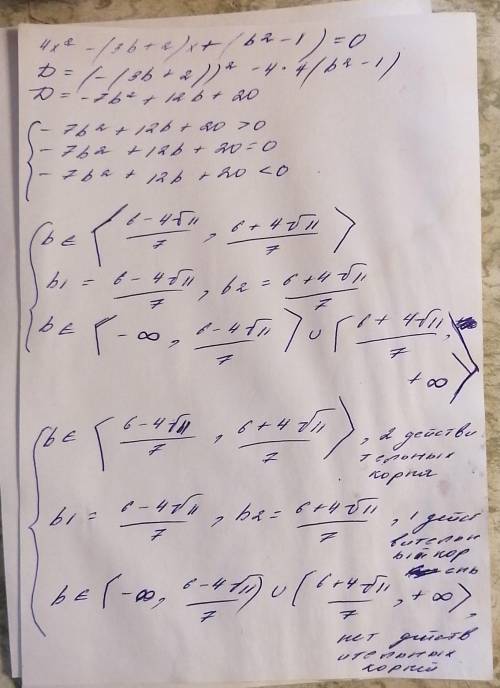 4x² - (3b+2)x + (b²-1) = 0
D = (-(3b+2))² - 4·4(b²-1)
D = -7b² + 12b + 20
{ -7b² + 12b + 20 > 0
-7b² + 12b + 20 = 0
-7b² + 12b + 20 < 0
{ b ∈ ⟨ (6-4√11)/7 , (6+4√11)/7 ⟩
b1 = (6-4√11)/7 , b2 = (6+4√11)/7
b ∈ ⟨ -∞ , (6-4√11)/7 ⟩ ∪ ⟨ (6+4√11)/7 ,
+∞ ⟩
{ b ∈ ⟨ (6-4√11)/7 , (6+4√11)/7 ⟩ , 2 действи
тельных
корня
b1 = (6-4√11)/7 , b2 = (6+4√11)/7 , 1 дейст
вительн
ый кор
ень
b ∈ ⟨ -∞ , (6-4√11)/7 ⟩ ∪ ⟨ (6+4√11)/7 , +∞ ⟩ ,
нет действ
ительных
корней